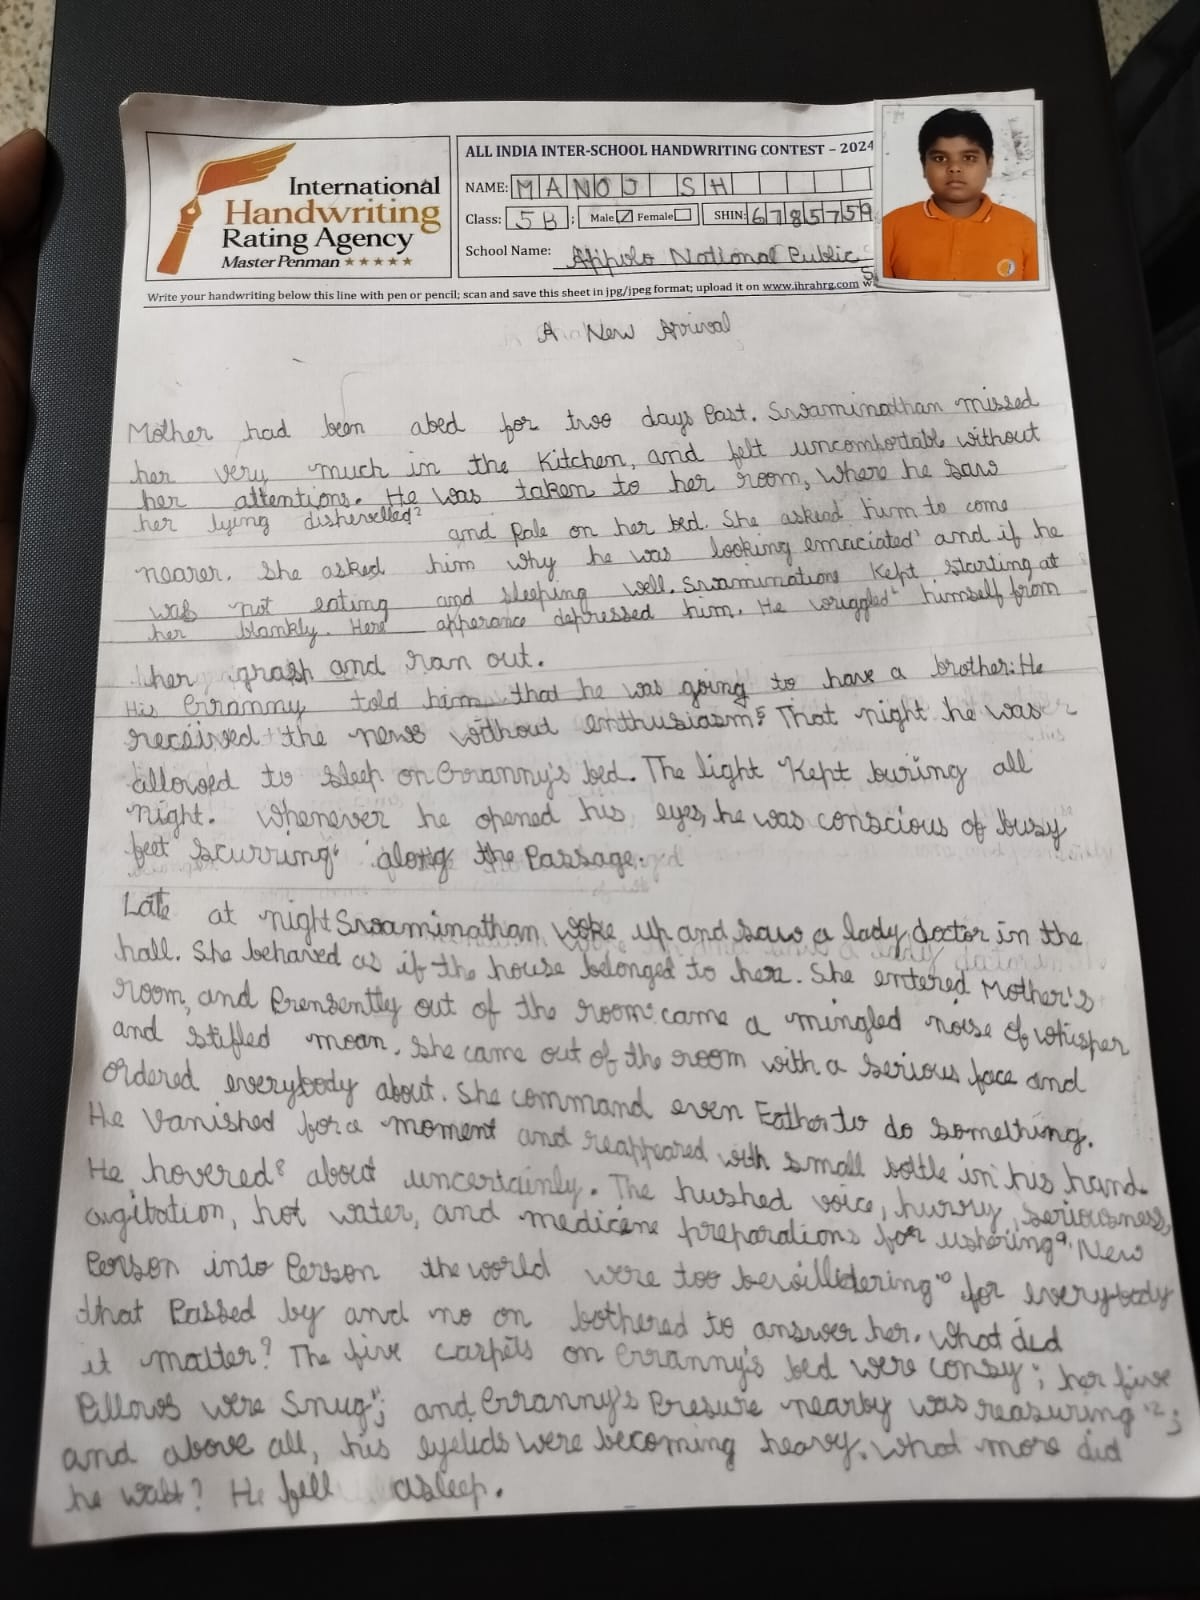 International
Handwriting
Rating Agency
Master Penman ★★★★★
ALL INDIA INTER-SCHOOL HANDWRITING CONTEST – 2024
NAME: MANOJ SH
Class: 5B ; Male Female SHIN: 6785759
School Name: Appolo National Public
Write your handwriting below this line with pen or pencil; scan and save this sheet in jpg/jpeg format; upload it on www.ihrahrg.com
A New Arrival
Mother had been abed for two days Past. Swaminathan missed
her very much in the Kitchen, and felt uncomfortable without
her attentions. He was taken to her room, Where he saw
her lying dishervelled² and Pale on her bed. She askead him to come
nearer. She asked him why he was looking emaciated³ and if he
was not eating and sleeping well. Swaminations Kept starting at
her blankly. Here apperance depressed him. He wriggled⁴ himself from
her grash and ran out.
His Grranny told him that he was going to have a brother. He
received the news without enthusiasm.⁵ That night he was
allowed to sleep on Grranny's bed. The light Kept buring all
night. Whenever he opened his eyes, he was conscious of busy
feet scurring⁶ along the Passage.
Late at night Swaminathan woke up and saw a lady doctor in the
hall. She behaved as if the house belonged to here. She entered Mother's
room, and Prensently out of the room came a mingled noise of whisper
and stifled moan. She came out of the room with a serious face and
ordered everybody about. She command even Father to do something.
He Vanished for a moment and reappeared with small bottle in his hand.
He hovered⁸ about uncertainly. The hushed voice, hurry, seriousness,
agitation, hot water, and medicine preparations for ushering⁹. New
Person into Person the world were too bewilldering¹⁰ for everybody
that Passed by and no on bothered to answer her. What did
it matter? The five carpets on Grranny's bed were consy; her five
Pillows were Snug¹¹; and Grranny's Presure nearby was reasuring¹²;
and above all, his eyelids were becoming heavy. What more did
he want? He fell asleep.